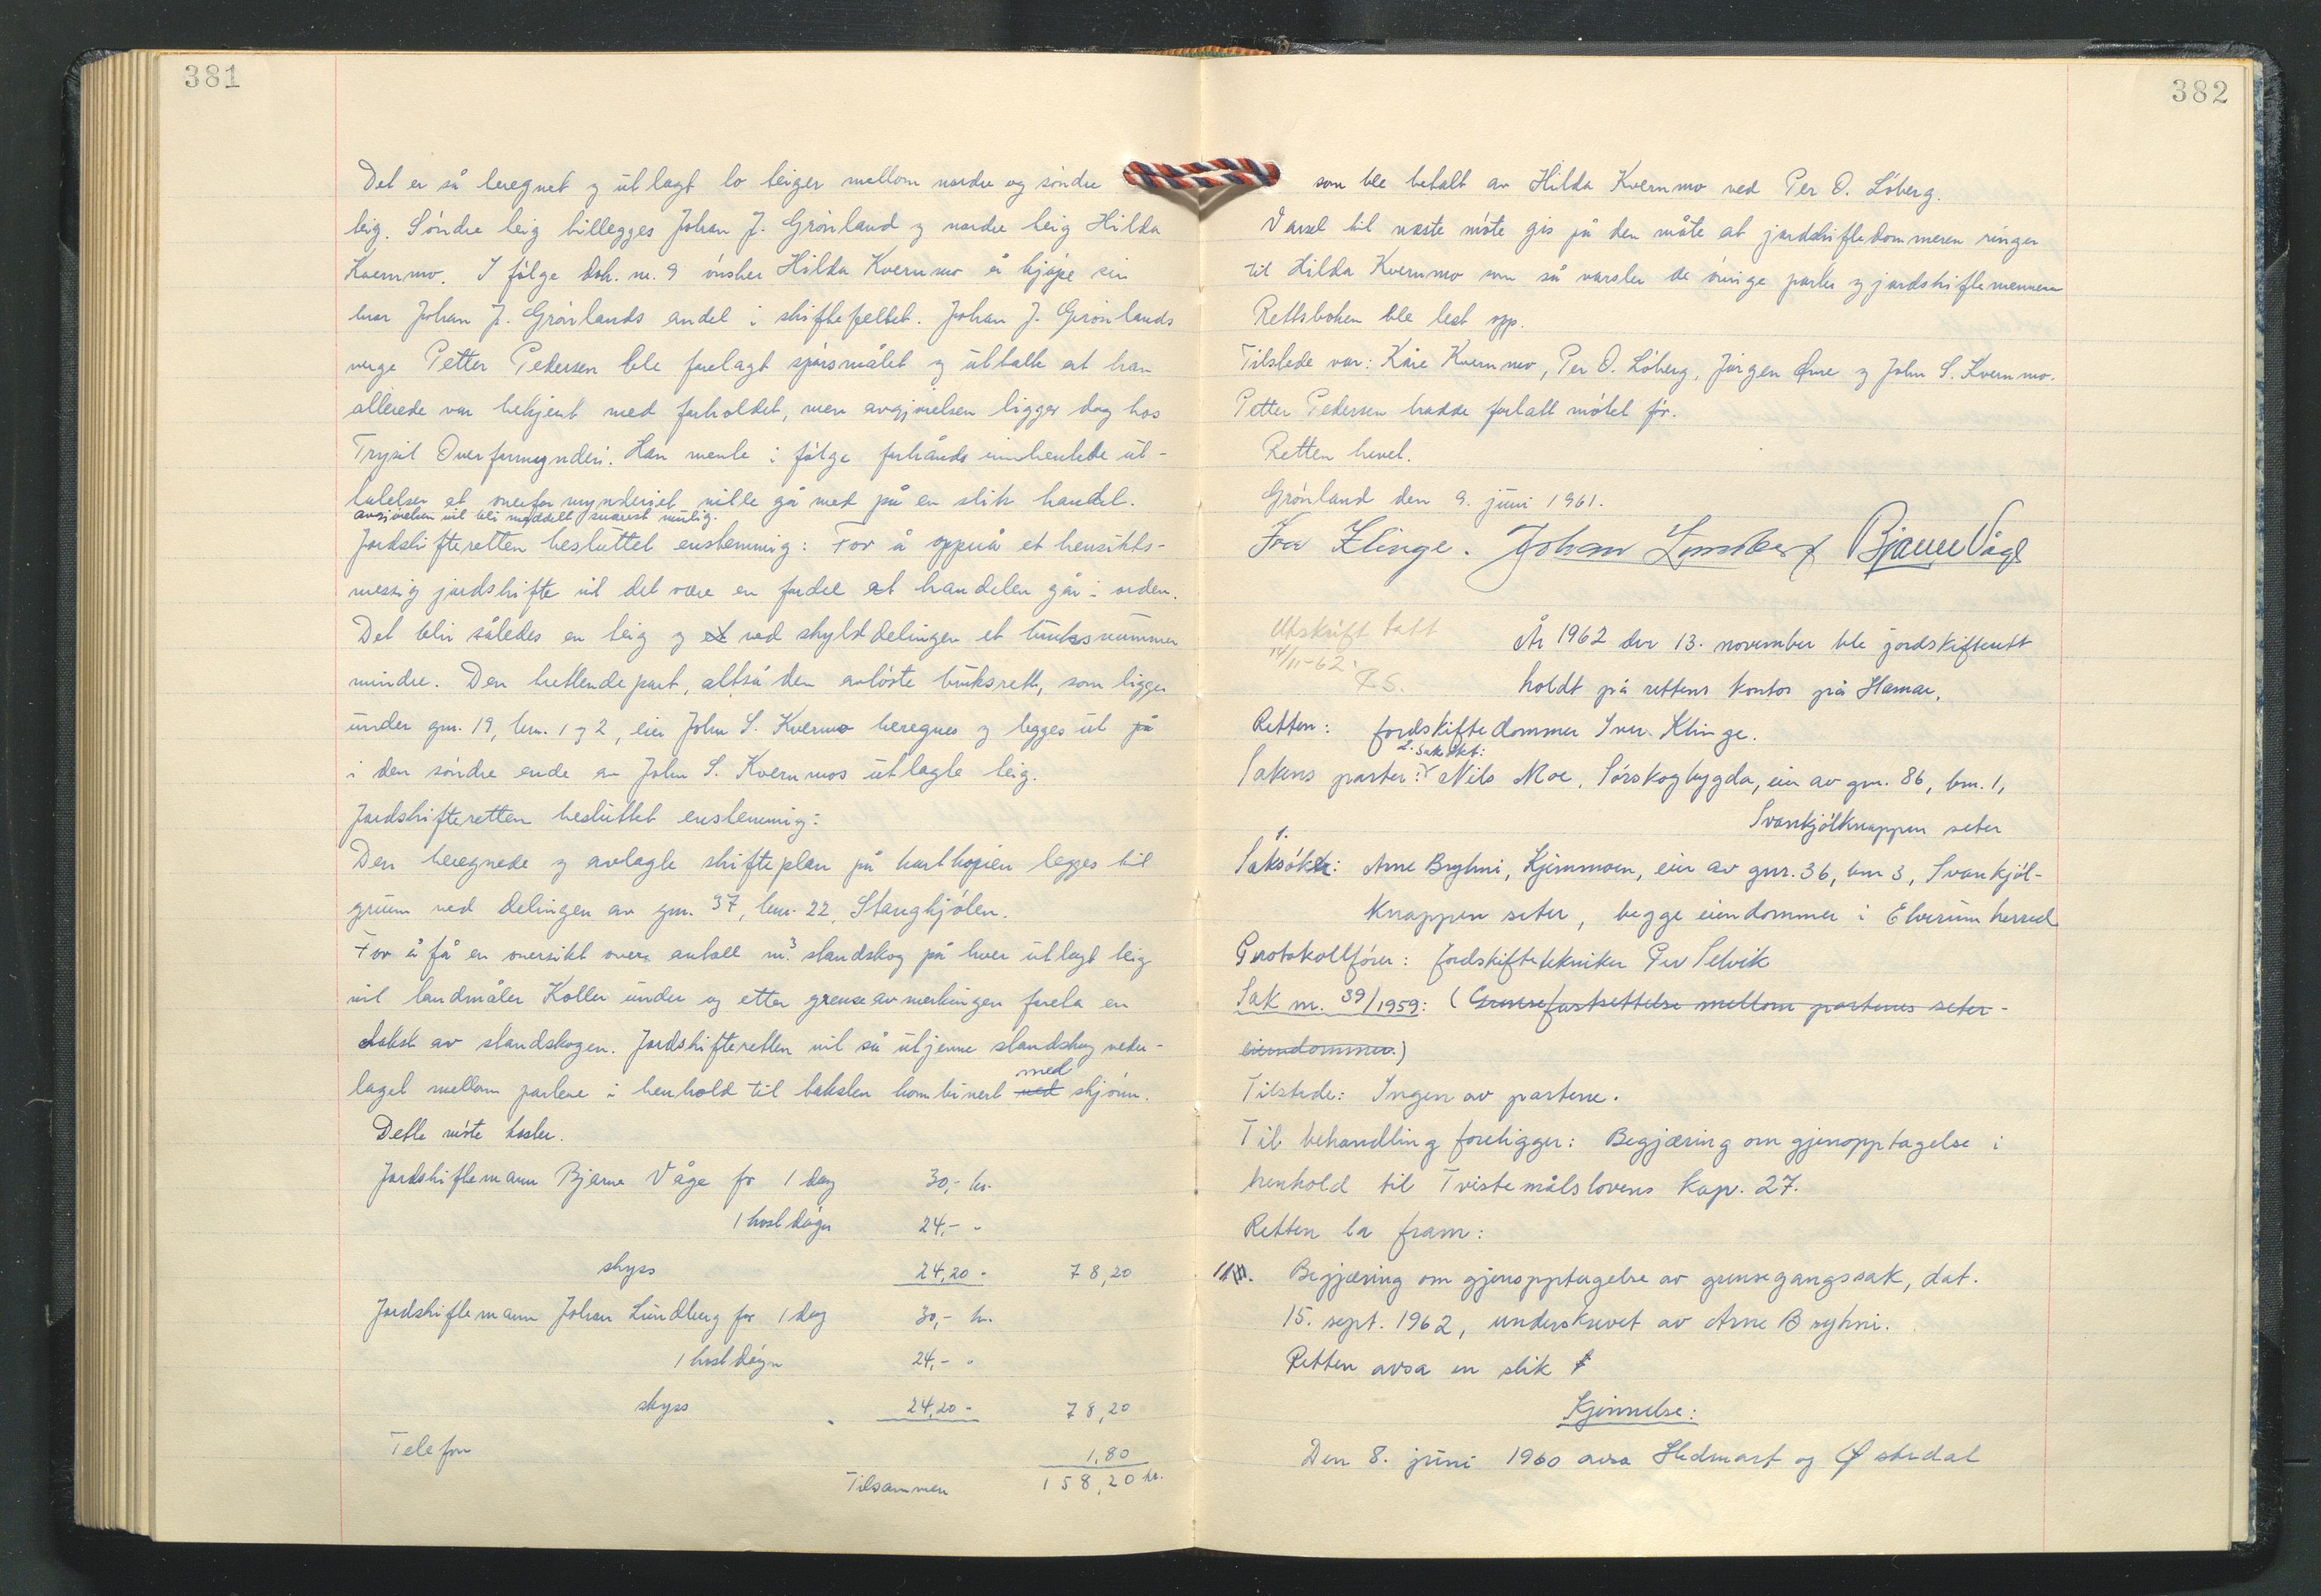 381
Det er så beregnet og utlagt to teiger mellom nordre og søndre
teig. Søndre teig tillegges Johan J. Grønland og nordre teig Hilda
Kvernmo. I følge dok. nr. 9 ønsker Hilda Kvernmo å kjøpe sin
bror Johan J. Grønlands andel i skiftefeltet. Johan J. Grønlands
verge Petter Pedersen ble forelagt spørsmålet og uttalte at han
allerede var bekjent med forholdet, men avgjørelsen ligger dog hos
Trysil Overformynderi. Han mente i følge forhånds innhentede ut-
talelser at overformynderiet ville gå med på en slik handel.
avgjørelsen vil bli meddelt snarest mulig.
Jordskifteretten besluttet enstemmig: For å oppnå et hensikts-
messig jordskifte vil det være en fordel at handelen går i orden.
Det blir således en teig og et ved skylddelingen et bruksnummer
mindre. Den trettende part, altså den avløste bruksrett, som ligger
under gnr. 19, bnr. 1 og 2, eier John S. Kvernmo beregnes og legges ut på
i den søndre ende av John S. Kvernmos utlagte teig.
Jordskifteretten besluttet enstemmig:
Den beregnede og avlagte skifteplan på kartkopien legges til
grunn ved delingen av gnr. 37, bnr. 22, Stangkjølen.
For å få en oversikt over antall m³ standskog på hver utlagt teig
vil landmåler Koller under og etter grenseavmerkingen foreta en
takst av standskogen. Jordskifteretten vil så utjevne standskogveder-
laget mellom partene i henhold til taksten kombinert ved med skjønn.
Dette møte koster.
Jordskiftemann Bjarne Våge for 1 dag 30,- kr.
1 kostdøgn 24,- "
skyss 24,20 - 78,20
Jordskiftemann Johan Lundberg for 1 dag 30,- kr.
1 kostdøgn 24,- "
skyss 24,20 - 78,20
Telefon 1,80
Tilsammen 158,20 kr.
382
som ble betalt av Hilda Kvernmo ved Per O. Løberg.
Varsel til neste møte gis på den måte at jordskiftedommeren ringer
til Hilda Kvernmo som så varsler de øvrige parter og jordskiftemennene
Rettsboken ble lest opp.
Tilstede var: Kåre Kvernmo, Per O. Løberg, Jørgen Øvre og John S. Kvernmo.
Petter Pedersen hadde forlatt møtet før.
Retten hevet.
Grønland den 9. juni 1961.
Iver Klinge. Johan Lundberg Bjarne Våge
Utskrift tatt
14/11-62.
P.S.
År 1962 den 13. november ble jordskifterett
holdt på rettens kontor på Hamar.
Retten: Jordskiftedommer Iver Klinge.
2. Saksøkt:
Sakens parter: Nils Moe, Sørskogbygda, eier av gnr. 86, bnr. 1,
Svankjølknappen seter
1.
Saksøker: Arne Bryhni, Kjernmoen, eier av gnr. 36, bnr 3, Svankjøl-
knappen seter, begge eiendommer i Elverum herred
Protokollfører: Jordskiftetekniker Per Selvik
Sak nr. 39/1959: (Grensefastsettelse mellom partenes seter-
eiendommer.)
Tilstede: Ingen av partene.
Til behandling foreligger: Begjæring om gjenopptagelse i
henhold til Tvistemålslovens kap. 27.
Retten la fram:
Begjæring om gjenopptagelse av grensegangssak, dat.
15. sept. 1962, underskrevet av Arne Bryhni.
Retten avsa en slik
Kjennelse:
Den 8. juni 1960 avsa Hedmark og Østerdal